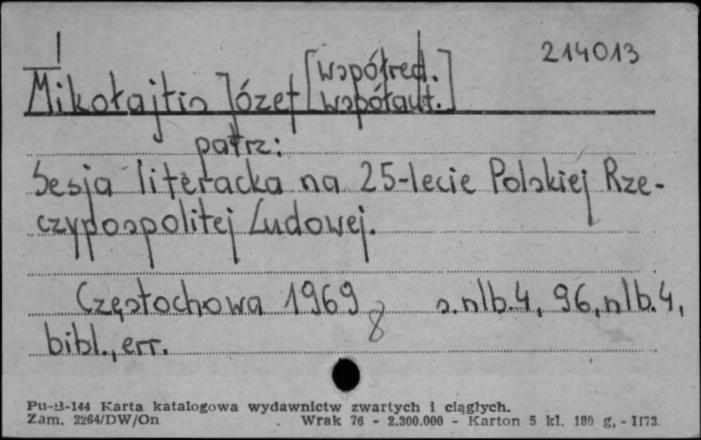 I
214013
Mikołajtis Józef [współred.
współaut.]
patrz:
Sesja literacka na 25-lecie Polskiej Rze-
czypospolitej Ludowej.
Częstochowa 1969 8 s. nlb. 4, 96, nlb. 4,
bibl., err.
Pu-B-144 Karta katalogowa wydawnictw zwartych i ciągłych.
Zam. 2264/DW/On Wrak 76 - 2.300.000 - Karton 5 kl. 180 g, - II73.